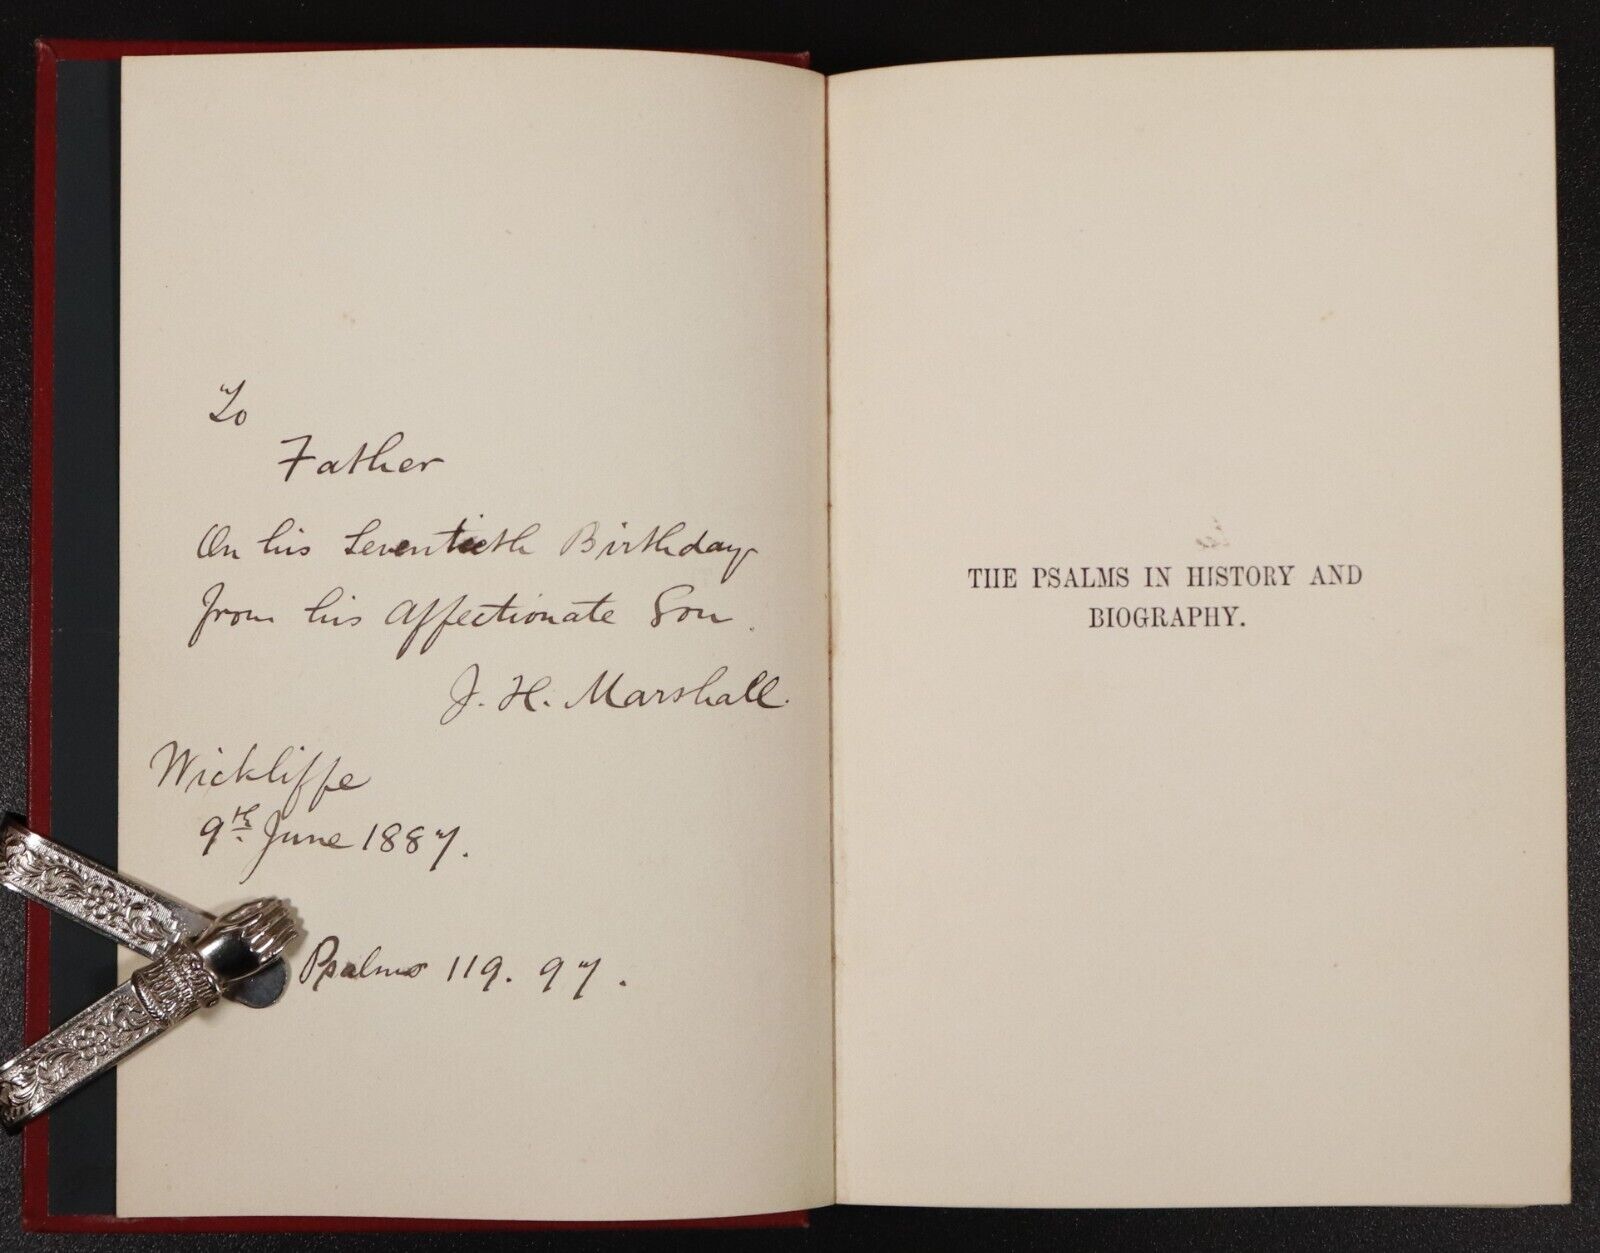 To
Father
On his Seventieth Birthday
from his affectionate Son.
J. H. Marshall.
Wickliffe
9th June 1887.
Psalms 119. 97.
THE PSALMS IN HISTORY AND
BIOGRAPHY.